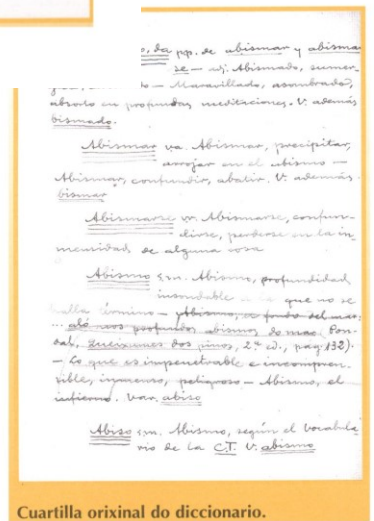 o, da pp. de abismar y abismar
se — adj. Abismado, sumer-
— Maravillado, asombrado,
absorto en profundas meditaciones. V. además
bismado.
Abismar va. Abismar, precipitar,
arrojar en el abismo —
Abismar, confundir, abatir. V. además
bismar
Abismarse vr. Abismarse, confun-
dirse, perderse en la in-
mensidad de alguna cosa
Abismo s.m. Abismo, profundidad
insondable a la que no se
halla término — Abismo, el fondo del mar,
aló nos profundos abismos do mao (Pon-
dal, Queixumes dos pinos, 2ª ed., pag. 132).
— Lo que es impenetrable e incompren-
sible, inmenso, peligroso — Abismo, el
infierno. Var. abiso
Abiso s.m. Abismo, según el Vocabula
rio de la C.T. V. abismo
Cuartilla orixinal do diccionario.